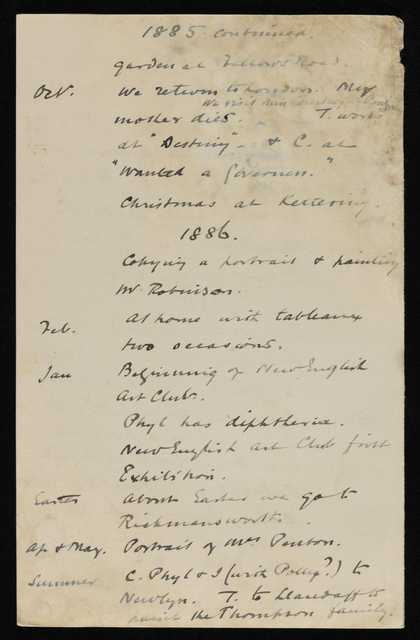 1885 continued.
garden at Road.
Oct. We return to London. My
We visit
mother dies. T. works
at "Destiny" & C. at
"Wanted a Governess."
Christmas at Kettering.
1886.
Copying a portrait & painting
Mr Robinson.
Feb. At home with tableaux
two occasions.
Jan Beginning of New English
Art Club.
Phyl has diphtheria.
New English Art Club first
Exhibition.
Easter About Easter we go to
Rickmansworth.
Ap & May. Portrait of Mrs Penton.
Summer C. Phyl & I (with Polly?) to
Newlyn. T. to Llandaff to
paint the Thompson family.